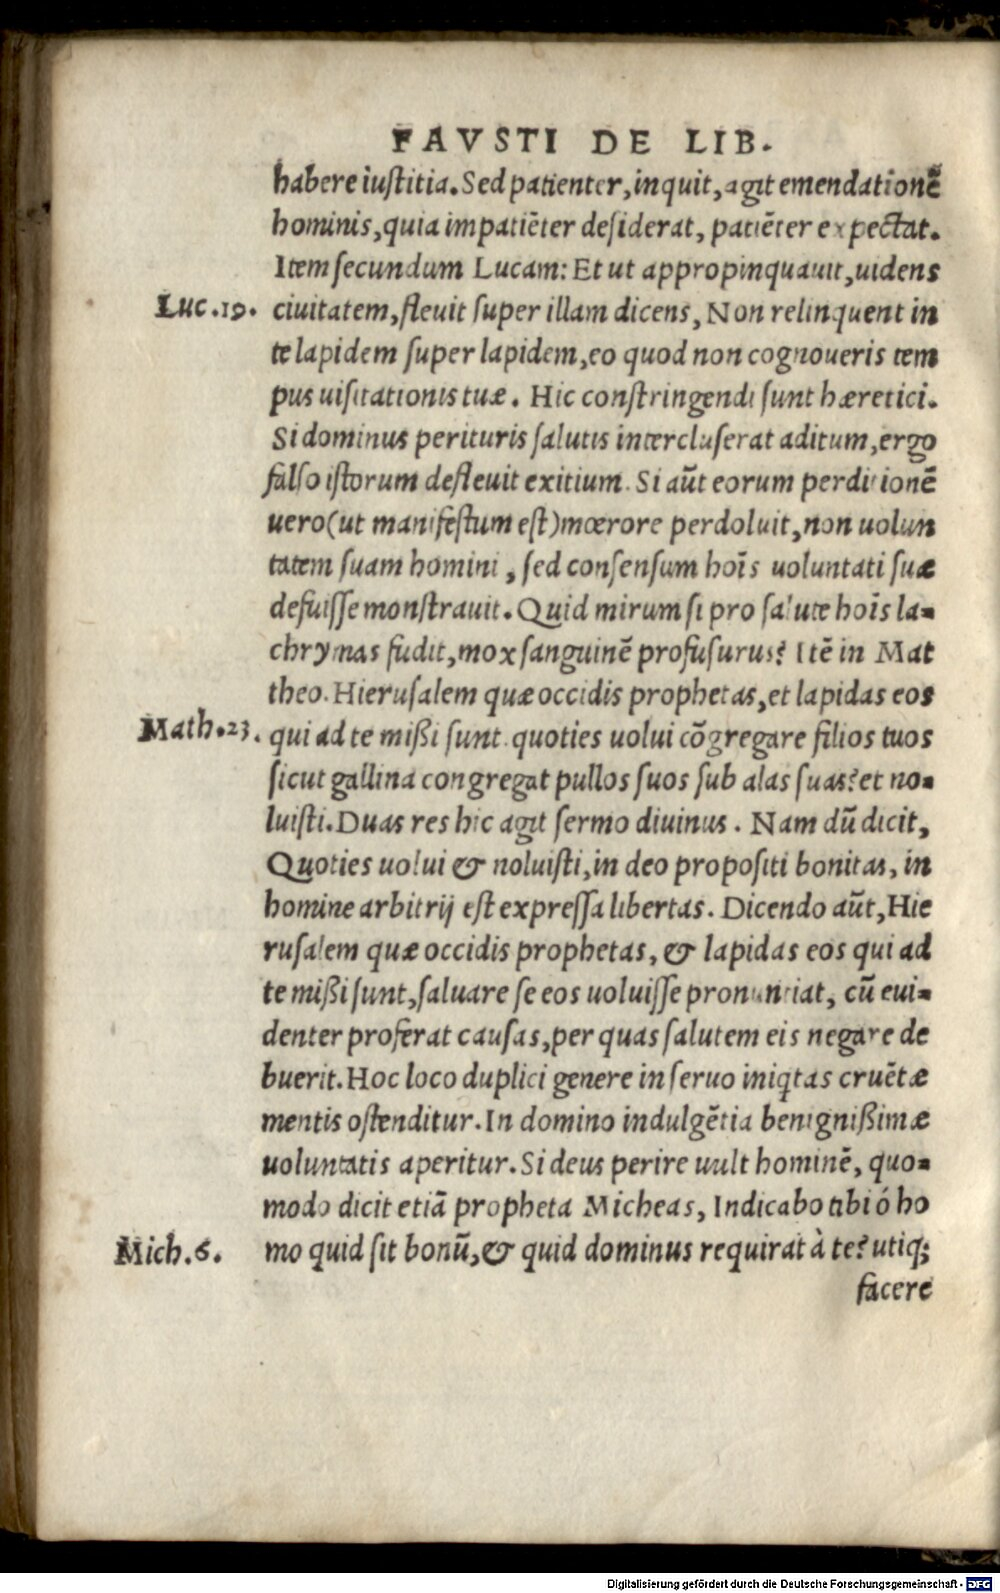 FAVSTI DE LIB.
habere iustitia. Sed patienter, inquit, agit emendationẽ
hominis, quia impatiẽter desiderat, patiẽter expectat.
Item secundum Lucam: Et ut appropinquauit, uidens
Luc. 19. ciuitatem, fleuit super illam dicens, Non relinquent in
te lapidem super lapidem, eo quod non cognoueris tem
pus uisitationis tuæ. Hic constringendi sunt hæretici.
Si dominus perituris salutis intercluserat aditum, ergo
falso istorum defleuit exitium. Si aũt eorum perditionẽ
uero (ut manifestum est) mœrore perdoluit, non uolun
tatem suam homini, sed consensum hoĩs uoluntati suæ
defuisse monstrauit. Quid mirum si pro salute hoĩs la-
chrymas fudit, mox sanguinẽ profusurus? Itẽ in Mat
theo. Hierusalem quæ occidis prophetas, et lapidas eos
Math. 23. qui ad te mißi sunt. quoties uolui cõgregare filios tuos
sicut gallina congregat pullos suos sub alas suas? et no-
luisti. Duas res hic agit sermo diuinus. Nam dũ dicit,
Quoties uolui & noluisti, in deo propositi bonitas, in
homine arbitrij est expressa libertas. Dicendo aũt, Hie
rusalem quæ occidis prophetas, & lapidas eos qui ad
te mißi sunt, saluare se eos uoluisse pronunciat, cũ eui-
denter proferat causas, per quas salutem eis negare de
buerit. Hoc loco duplici genere in seruo iniq̃tas cruẽtæ
mentis ostenditur. In domino indulgẽtia benignißimæ
uoluntatis aperitur. Si deus perire uult hominẽ, quo-
modo dicit etiã propheta Micheas, Indicabo tibi ó ho
Mich. 6. mo quid sit bonũ, & quid dominus requirat à te? utiq;
facere
Digitalisierung gefördert durch die Deutsche Forschungsgemeinschaft - DFG